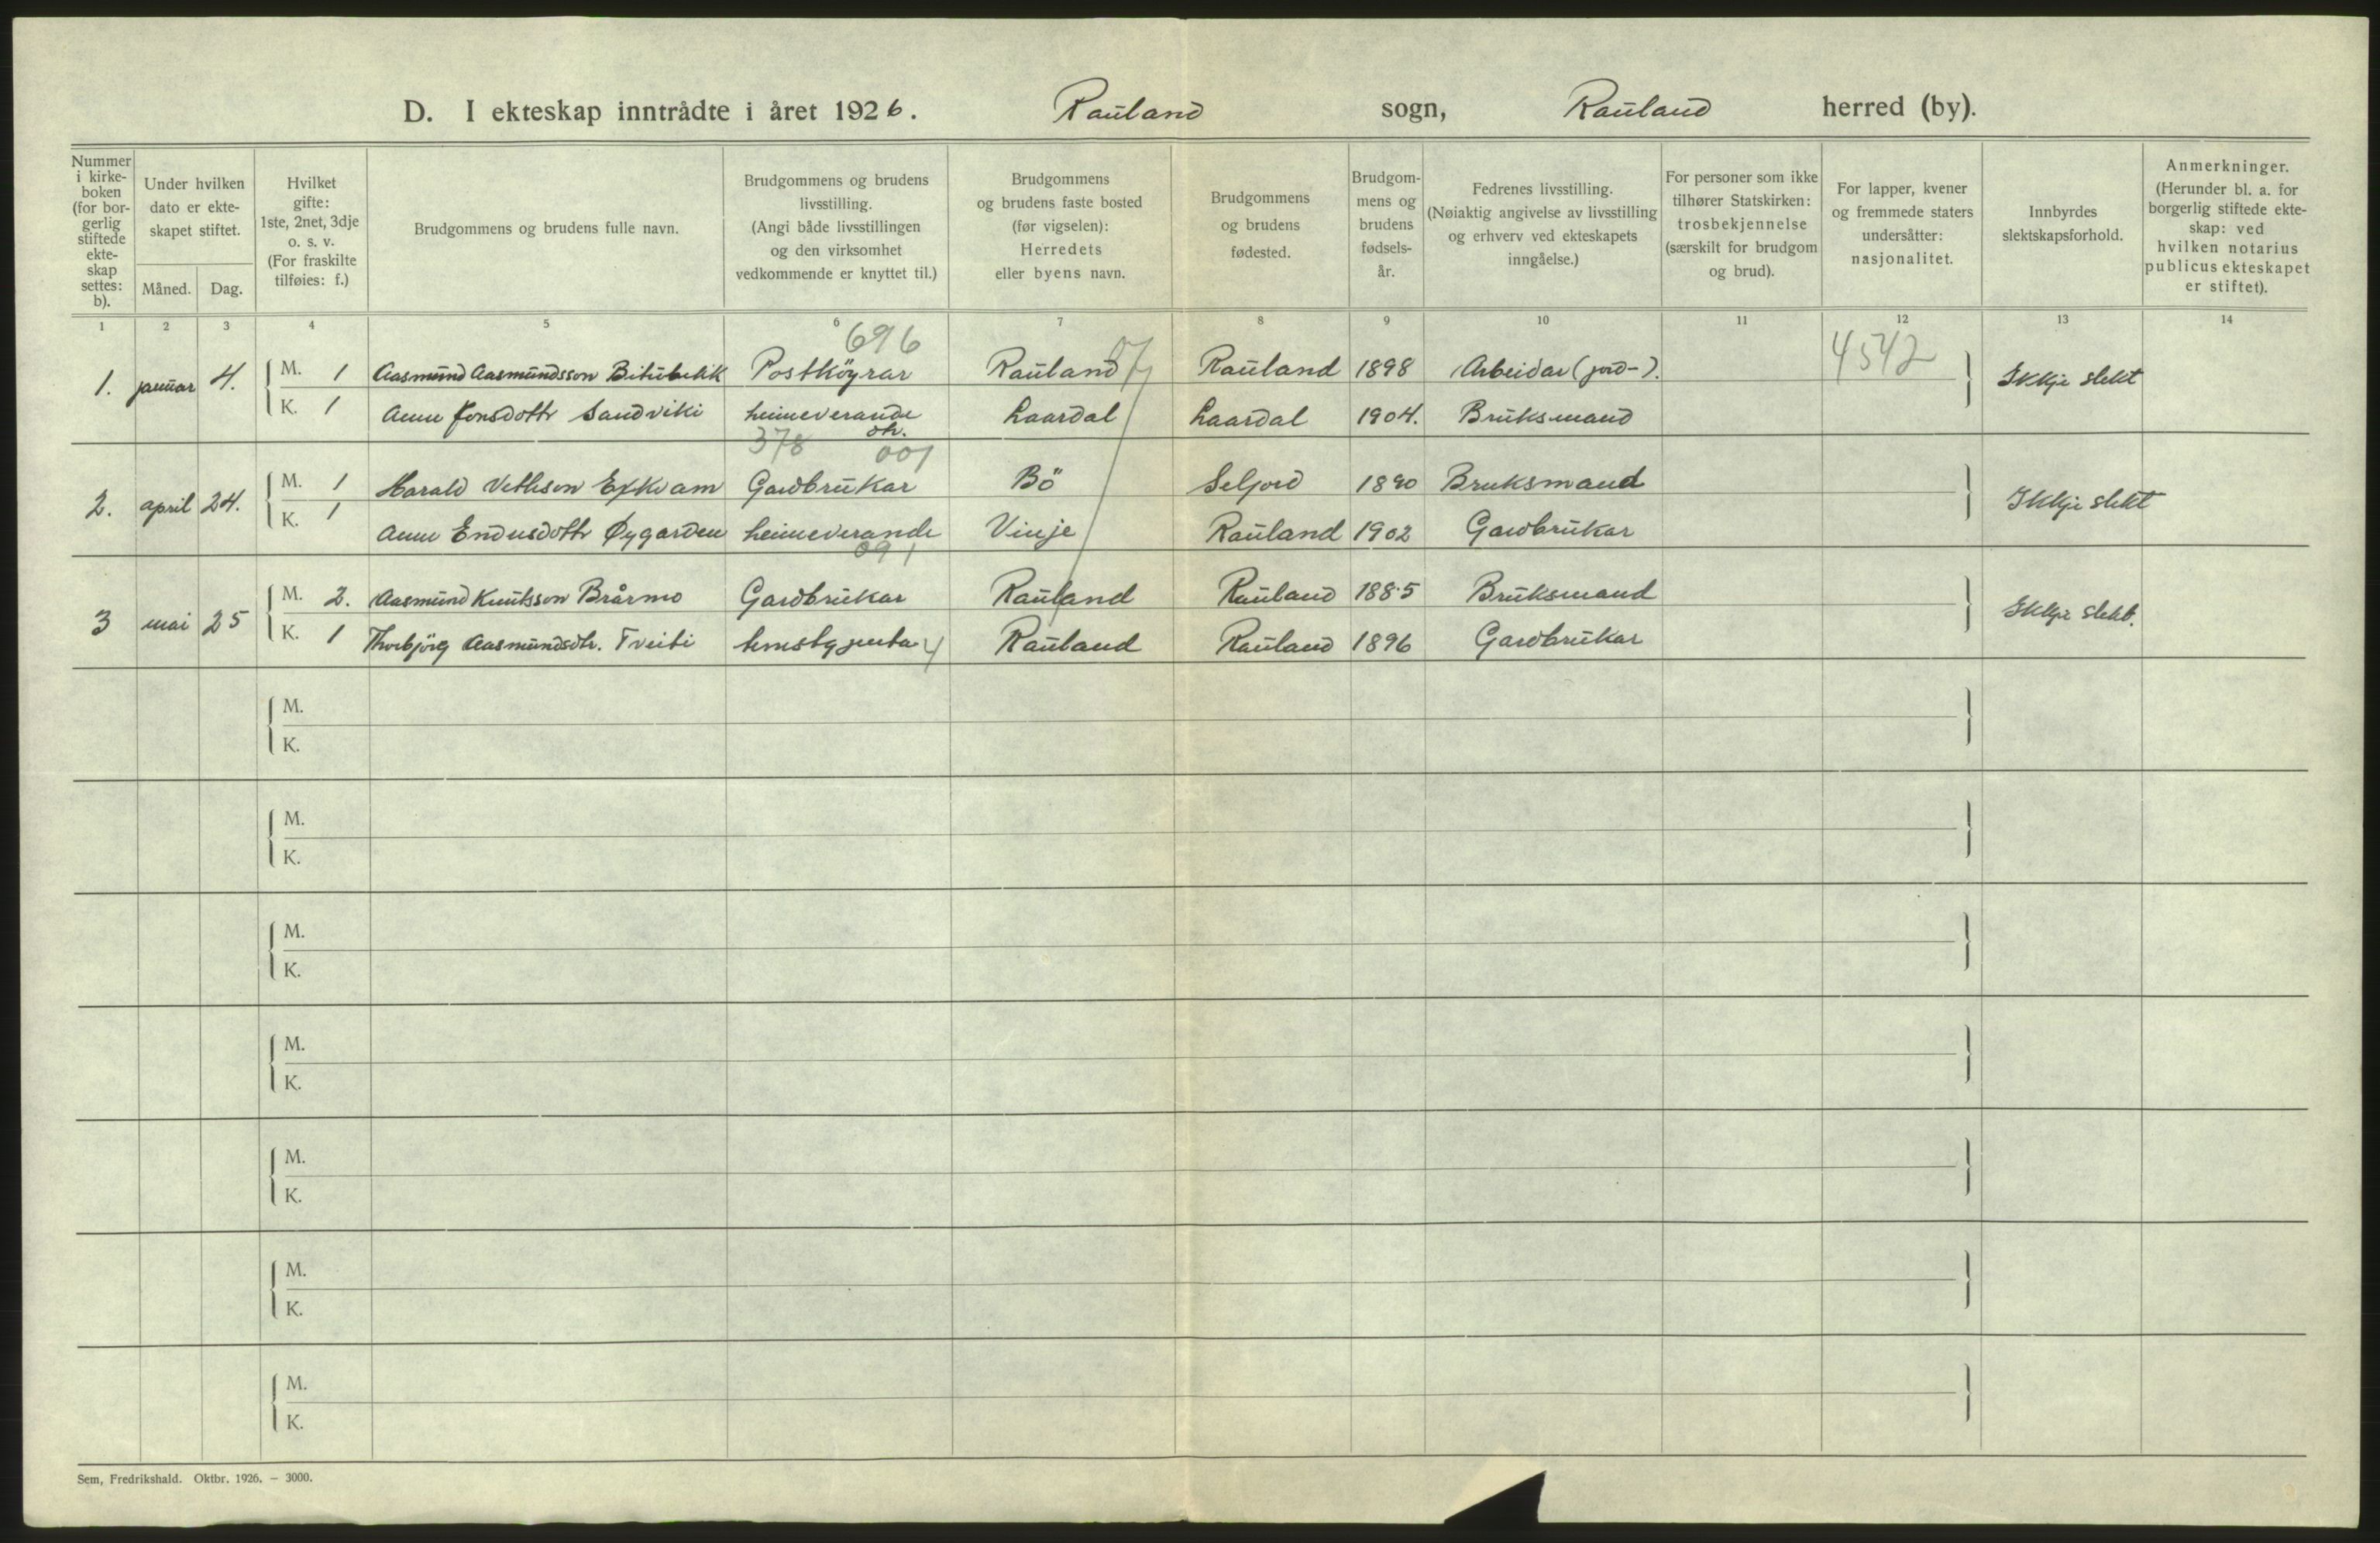 D. I ekteskap inntrådte i året 1926. Rauland sogn, Rauland herred (by).
Nummer i kirke-boken (for bor-gerlig stiftede ekte-skap settes: b).
Under hvilken dato er ekte-skapet stiftet.
Måned. Dag.
Hvilket gifte: 1ste, 2net, 3dje o. s. v. (For fraskilte tilføies: f.)
Brudgommens og brudens fulle navn.
Brudgommens og brudens livsstilling. (Angi både livsstillingen og den virksomhet vedkommende er knyttet til.)
Brudgommens og brudens faste bosted (før vigselen): Herredets eller byens navn.
Brudgommens og brudens fødested.
Brudgom-mens og brudens fødsels-år.
Fedrenes livsstilling. (Nøiaktig angivelse av livsstilling og erhverv ved ekteskapets inngåelse.)
For personer som ikke tilhører Statskirken: trosbekjennelse (særskilt for brudgom og brud).
For lapper, kvener og fremmede staters undersåtter: nasjonalitet.
Innbyrdes slektskapsforhold.
Anmerkninger. (Herunder bl. a. for borgerlig stiftede ekte-skap: ved hvilken notarius publicus ekteskapet er stiftet).
1 2 3 4 5 6 7 8 9 10 11 12 13 14
696 4542
1. januar 4. M. 1 Aasmund Aasmundsson Bitubekk Postköyrar Rauland Rauland 1898 Arbeidar (jord-). Ikkje slekt
K. 1 Anne Jonsdottr Sandviki heimeverande Laardal Laardal 1904. Bruksmand
378 dtr. 001
2. april 24. M. 1 Harald Vetleson Exkvam Gardbrukar Bö Seljord 1890 Bruksmand Ikkje slekt
K. 1 Anne Endusdottr Øygarden heimeverande Vinje Rauland 1902 Gardbrukar
091
3 mai 25 M. 2. Aasmund Knutsson Brårmo Gardbrukar Rauland Rauland 1885 Bruksmand Ikkje slekt.
K. 1 Thorbjörg Aasmundsdtr. Tveiti Rauland Rauland 1896 Gardbrukar
M.
K.
M.
K.
M.
K.
M.
K.
M.
K.
M.
K.
M.
K.
Sem, Fredrikshald. Oktbr. 1926. – 3000.